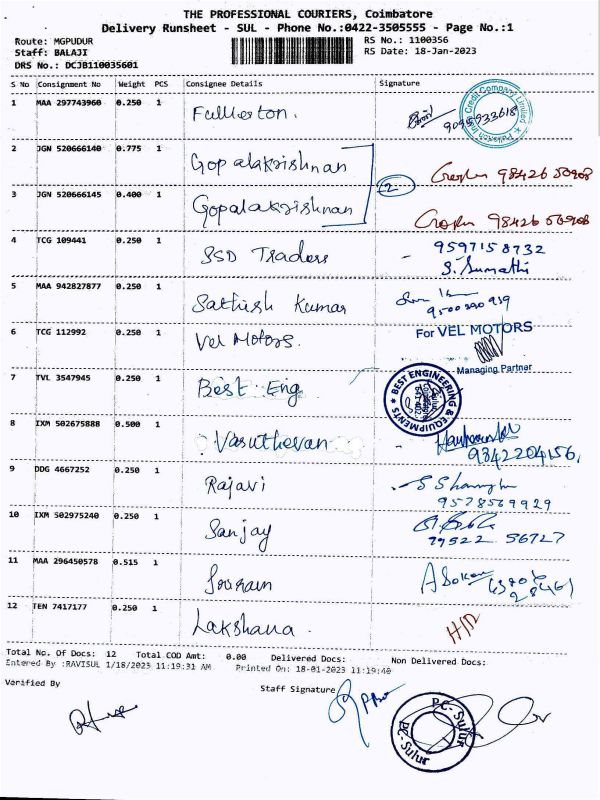 THE PROFESSIONAL COURIERS, Coimbatore
Delivery Runsheet - SUL - Phone No.:0422-3505555 - Page No.:1
Route: MGPUDUR RS No.: 1100356
Staff: BALAJI RS Date: 18-Jan-2023
DRS No.: DCJB110035601
S No Consignment No Weight PCS Consignee Details Signature
1 MAA 297743960 0.250 1 Fullerton. 9095933618
Credit Company Limited
2 JGN 520666140 0.775 1 Gopalakrishnan 98426 50908
2
3 JGN 520666145 0.400 1 Gopalakrishnan 98426 50908
4 TCG 109441 0.250 1 SSD Traders - 9597158732
S. Sumathi
5 MAA 942827877 0.250 1 Sathish Kumar
6 TCG 112992 0.250 1 Vel Motors. For VEL MOTORS
Managing Partner
7 TVL 3547945 0.250 1 Best Eng BEST ENGINEERING & EQUIPMENTS
8 IXM 502675888 0.500 1 Vasuthevan - 9842204156,
9 DDG 4667252 0.250 1 Rajavi
9578569929
10 IXM 502975240 0.250 1 Sanjay
79522 56727
11 MAA 296450578 0.515 1
12 TEN 7417177 0.250 1 Lakshana.
Total No. Of Docs: 12 Total COD Amt: 0.00 Delivered Docs: Non Delivered Docs:
Entered By :RAVISUL 1/18/2023 11:19:31 AM Printed On: 18-01-2023 11:19:40
Verified By Staff Signature
PC-Sulur
PC-Sulur